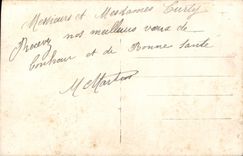 Messieurs et Mesdames Curty
Recevez nos meilleurs vœux de
bonheur et de Bonne Santé
M Martin